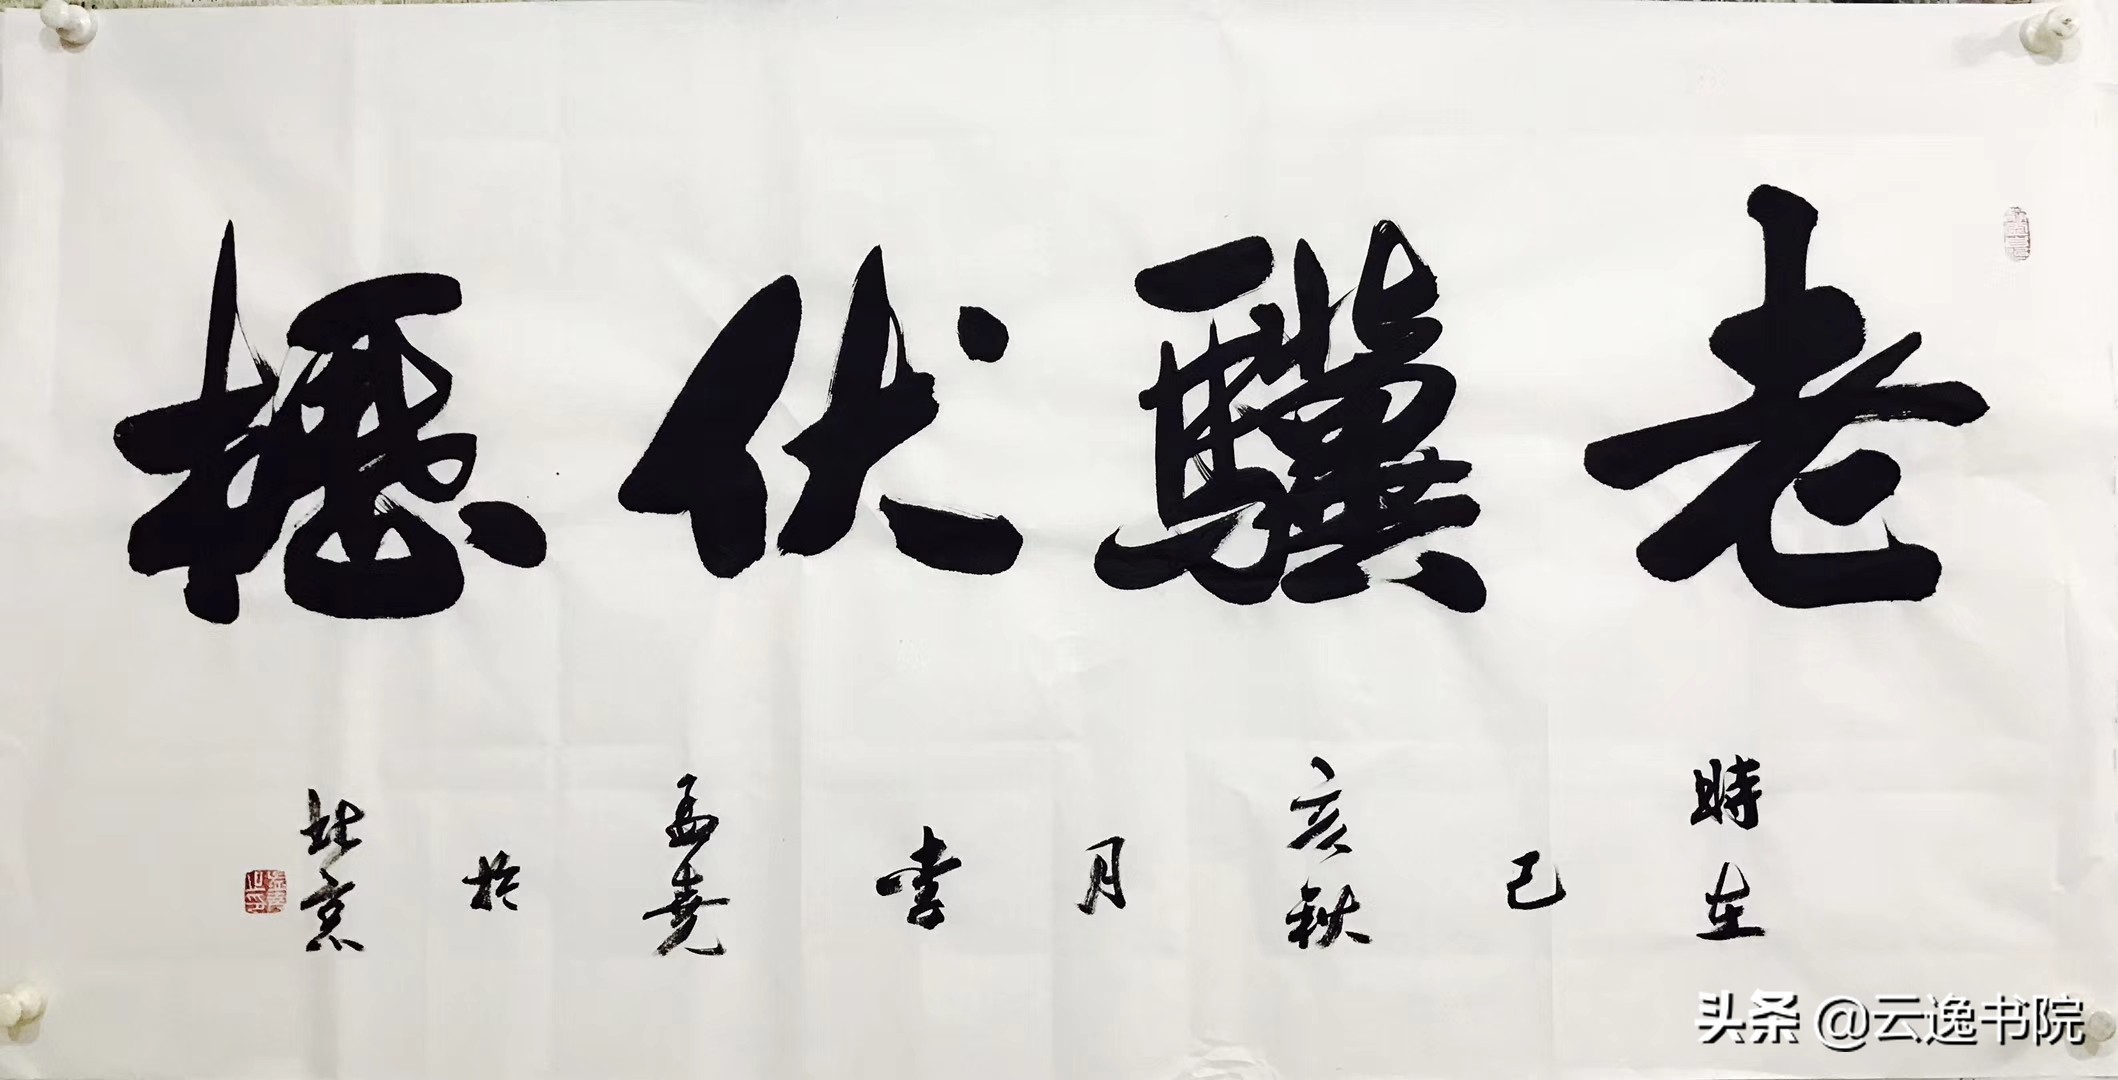 老驥伏櫪
時在己亥秋月李孟堯於北京
头条 @云逸书院